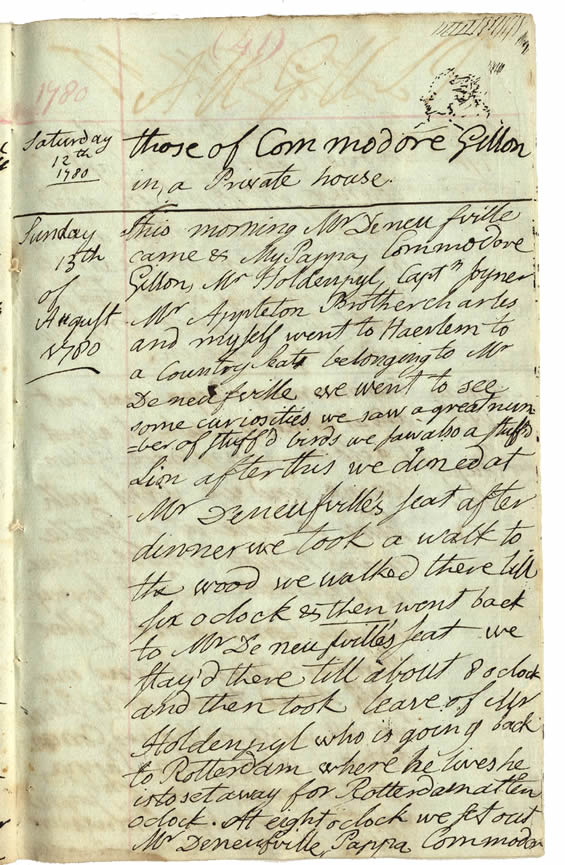 (41)
1780
Saturday
12th
1780
those of Commodore Gillon
in, a Private house.
Sunday
13th
of
August
1780
This morning Mr Deneufville
came & My Pappa, Commodore
Gillon, Mr Holdenpyl, Captn Joyner
Mr Appleton Brother charles
and myself went to Haerlem to
a Country Seat belonging to Mr
Deneufville we went to see
some curiosities we saw a great num
=ber of stuff'd birds we saw also a stuff'd
Lion after this we dined at
Mr Deneufville's seat after
dinner we took a walk to
the wood we walked there till
six oclock & then went back
to Mr Deneufville's seat we
stay'd there till about 8 oclock
and then took leave of Mr
Holdenpyl who is going back
to Rotterdam where he lives he
is to set away for Rotterdam at ten
oclock. At eight oclock we set out
Mr Deneufville, Pappa, Commodor